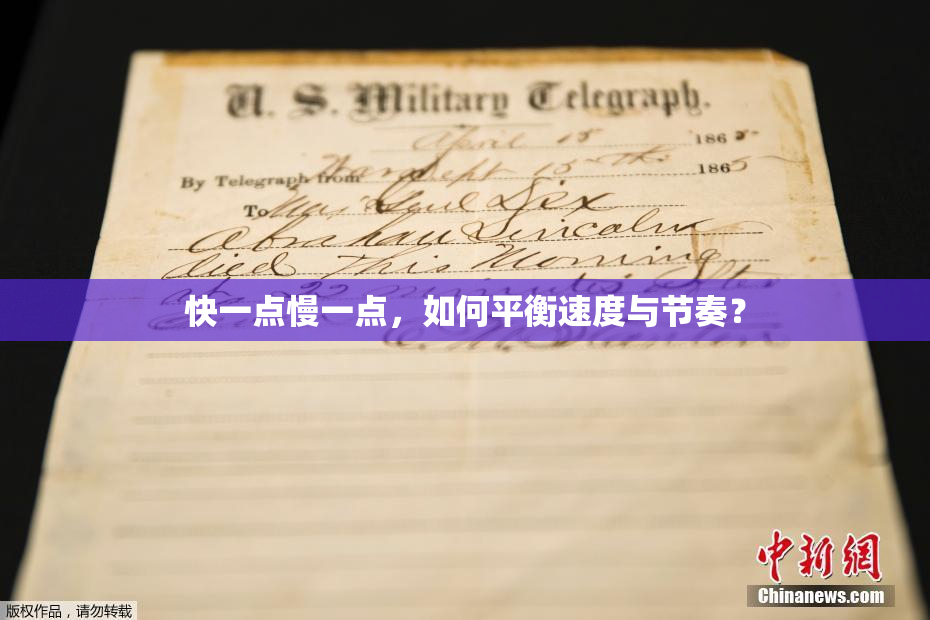 U. S. Military Telegraph.
April 15 1865
By Telegraph from War Dept 15th 1865
To Maj Genl Dix
Abraham Lincoln
died This Morning
at 22 minutes after
快一点慢一点，如何平衡速度与节奏？
E. M. Stanton
中新網
Chinanews.com
版权作品，请勿转载